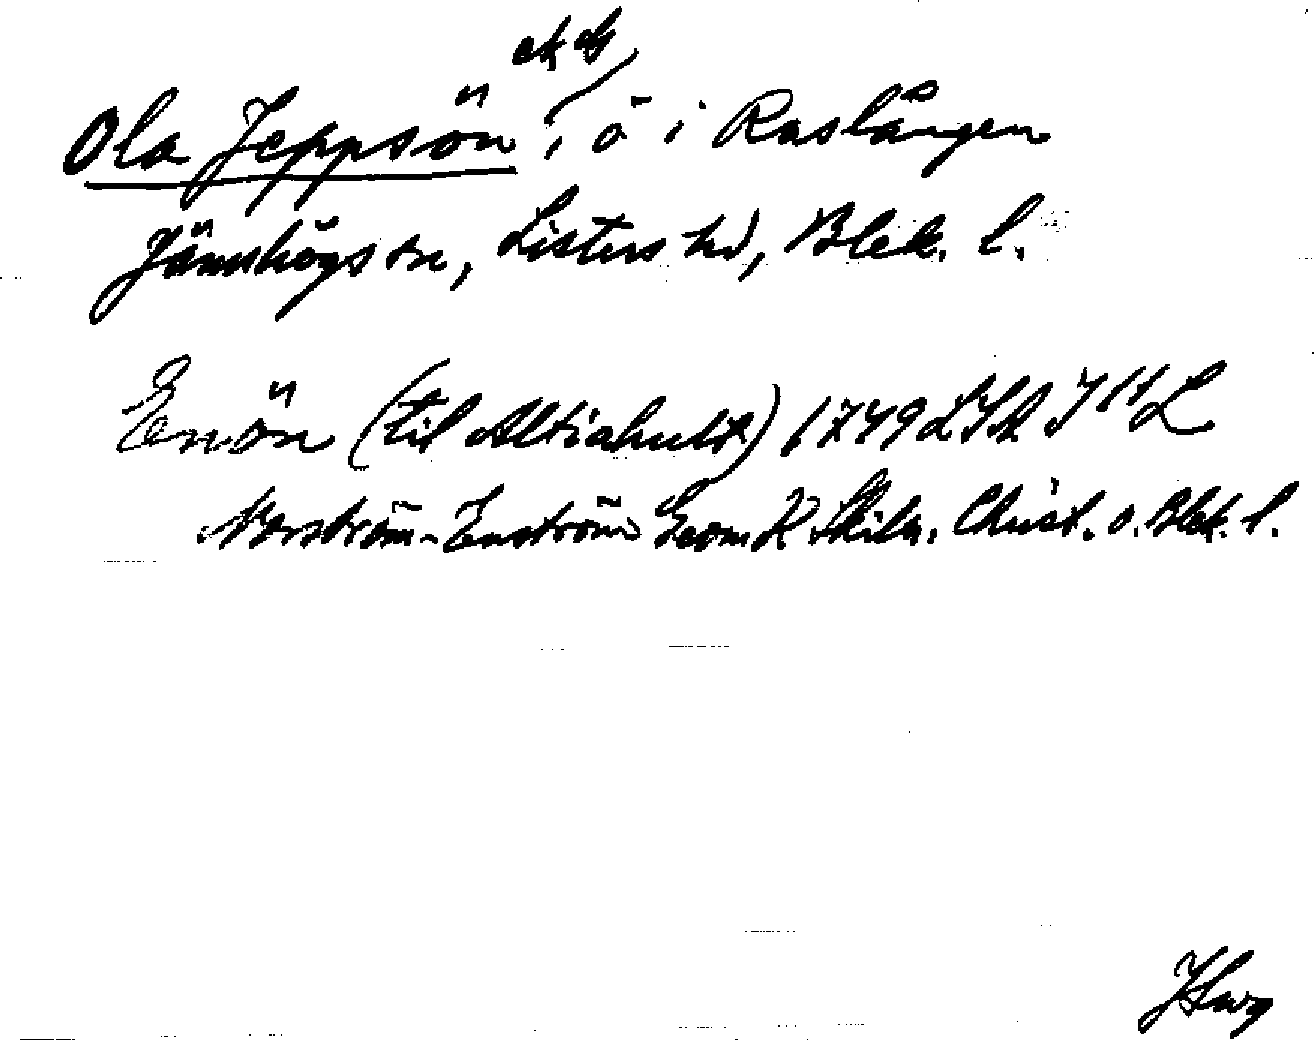 Ola Jeppsön, ö i Raslången
Jämshögs sn, Listers hd, Blek. l.
Enön (til Altiahult) 1749 LSA J 11 L
Norström-Enström Geom K Skiln. Christ. o. Blek. l.